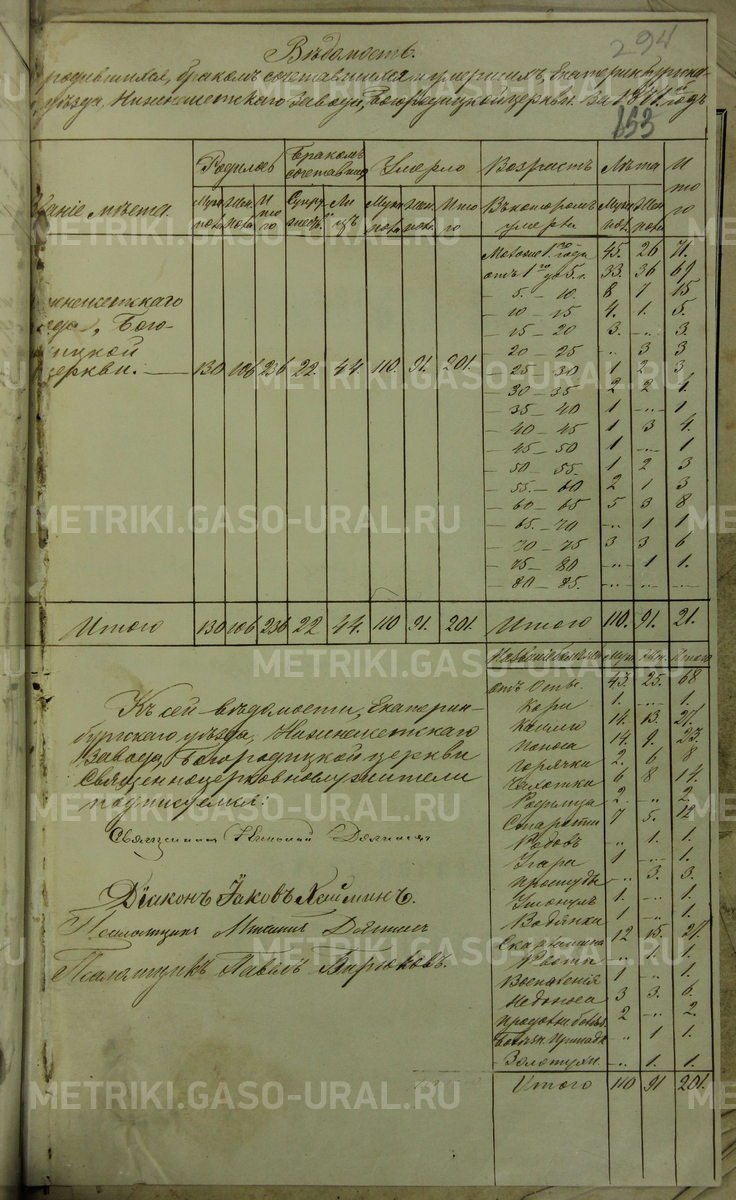 294
Вѣдомость.
родившихся, бракомъ сочетавшихся и умершихъ, Екатеринбургска-
уѣзда, Нижнеисетскаго завода, Богородицкой церкви. За 1871 й годъ
153
Родилось Бракомъ сочетавших Умерло Возрастъ Лѣта Итого
ваніе мѣста. Муж пола Жен пола Итого Супру жествъ Лицъ Муж пола Жен пола Итого Въ которомъ умерли Муж пол. Жен пола
Моложе 1го года 45. 26 71.
отъ 1го до 5 л. 33. 36 69.
- 5. - 10. 8 7 15
- 10 - 15 4. 1. 5.
- 15 - 20 3. -„- 3.
- 20 - 25 -„ 3 3
- 25 - 30 1 2 3.
- 30 - 35 2 2 1.
- 35 - 40 1 -„- 1
- 40 - 45 1 3 4.
- 45 - 50 1 -„- 1
- 50 - 55. 1 2 3
- 55. - 60 2 1 3
- 60 - 65 5 3 8
- 65. - 70 -„- 1 1
- 70 - 75 3 3 6
- 75 - 80 -„- 1 1.
- 80 - 85. -„- -„- -„-
жнеисетскаго
Бого-
ицкой
церкви. 130 106 236 22. 44 110. 91. 201.
Итого 130 106 236 22 44. 110 91. 201. Итого 110. 91. 21.
Муж. Жен. Итого
отъ Оспы. 43. 25. 68
Кори 1. -„- 1.
Кашлю 14. 13. 27.
Поноса 14. 9. 23.
Горячки 2. 6 8
Чахотки 6 8 14.
Родимца 2. „ 2.
Старости 7 5. 12
Родовъ -„ 1. 1.
Угара 1 -„ 1.
Простуды -„ 3. 3.
Утонулъ 1. -„ 1.
Водянки 1 -„ 1.
Скарлатина 12 15. 27.
Рвоты -„ 1. 1.
Воспаленія 1 -„ 1.
Недоноса 3 3. 6.
2 -„ 2.
-„ 1 1.
Золотухи -„ 1. 1.
Итого 110 91 201.
Къ сей вѣдомости, Екатерин-
бургскаго уѣзда, Нижнеисетскаго
Завода, Богородицкой церкви
Священноцерковнослужители
подписуемся:
Священникъ Николай
Діаконъ Іаковъ
Псаломщикъ
Псаломщикъ Павелъ Бирюковъ.
METRIKI.GASO-URAL.RU